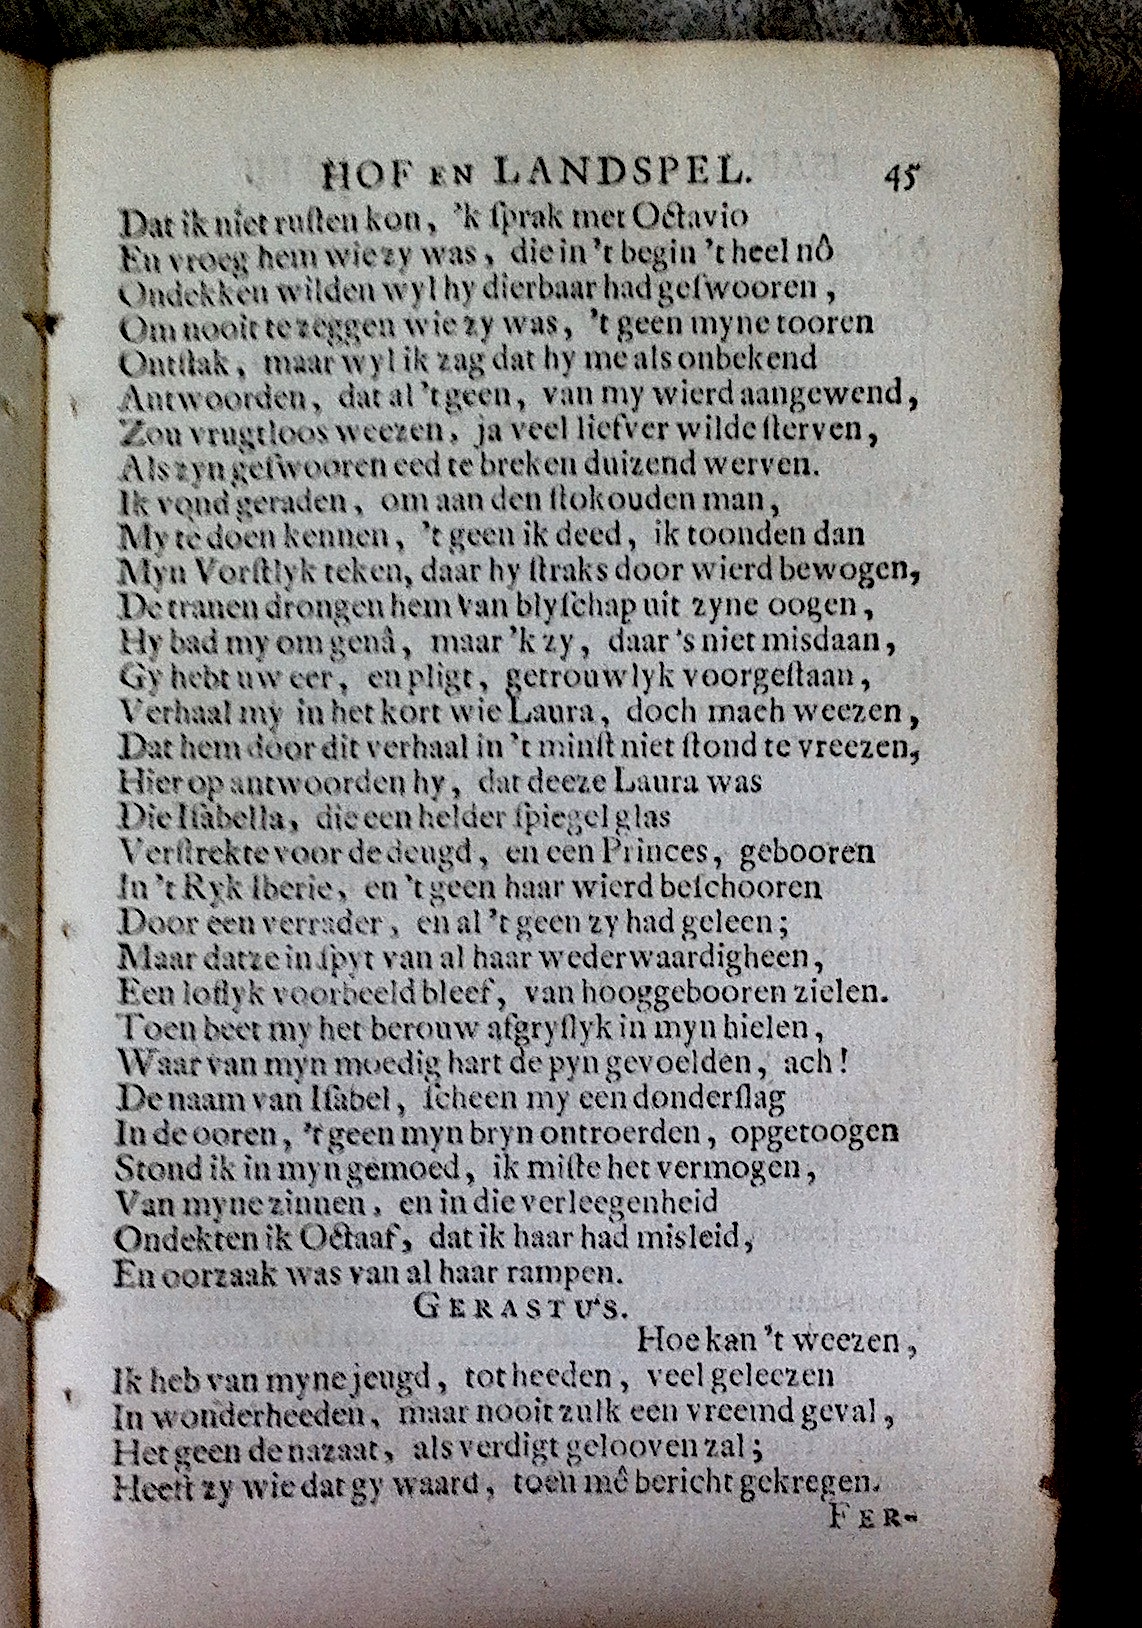 HOF EN LANDSPEL. 45
Dat ik niet ruſten kon, 'k ſprak met Octavio
En vroeg hem wie zy was, die in 't begin 't heel nô
Ondekken wilden wyl hy dierbaar had geſwooren,
Om nooit te zeggen wie zy was, 't geen myne tooren
Ontſtak, maar wyl ik zag dat hy me als onbekend
Antwoorden, dat al 't geen, van my wierd aangewend,
Zou vrugtloos weezen, ja veel liefver wilde ſterven,
Als zyn geſwooren eed te breken duizend werven.
Ik vond geraden, om aan den ſtokouden man,
My te doen kennen, 't geen ik deed, ik toonden dan
Myn Vorſtlyk teken, daar hy ſtraks door wierd bewogen,
De tranen drongen hem van blyſchap uit zyne oogen,
Hy bad my om genâ, maar 'k zy, daar 's niet misdaan,
Gy hebt uw eer, en pligt, getrouwlyk voorgeſtaan,
Verhaal my in het kort wie Laura, doch mach weezen,
Dat hem door dit verhaal in 't minſt niet ſtond te vreezen,
Hier op antwoorden hy, dat deeze Laura was
Die Iſabella, die een helder ſpiegel glas
Verſtrekte voor de deugd, en een Princes, gebooren
In 't Ryk Iberie, en 't geen haar wierd beſchooren
Door een verrader, en al 't geen zy had geleen;
Maar datze in ſpyt van al haar wederwaardigheen,
Een loflyk voorbeeld bleef, van hooggebooren zielen.
Toen beet my het berouw afgryſlyk in myn hielen,
Waar van myn moedig hart de pyn gevoelden, ach!
De naam van Iſabel, ſcheen my een donderſlag
In de ooren, 't geen myn bryn ontroerden, opgetoogen
Stond ik in myn gemoed, ik miſte het vermogen,
Van myne zinnen, en in die verleegenheid
Ondekten ik Octaaf, dat ik haar had misleid,
En oorzaak was van al haar rampen.
GERASTUS.
Hoe kan 't weezen,
Ik heb van myne jeugd, tot heeden, veel geleezen
In wonderheeden, maar nooit zulk een vreemd geval,
Het geen de nazaat, als verdigt gelooven zal;
Heeft zy wie dat gy waard, toen mê bericht gekregen.
FER-